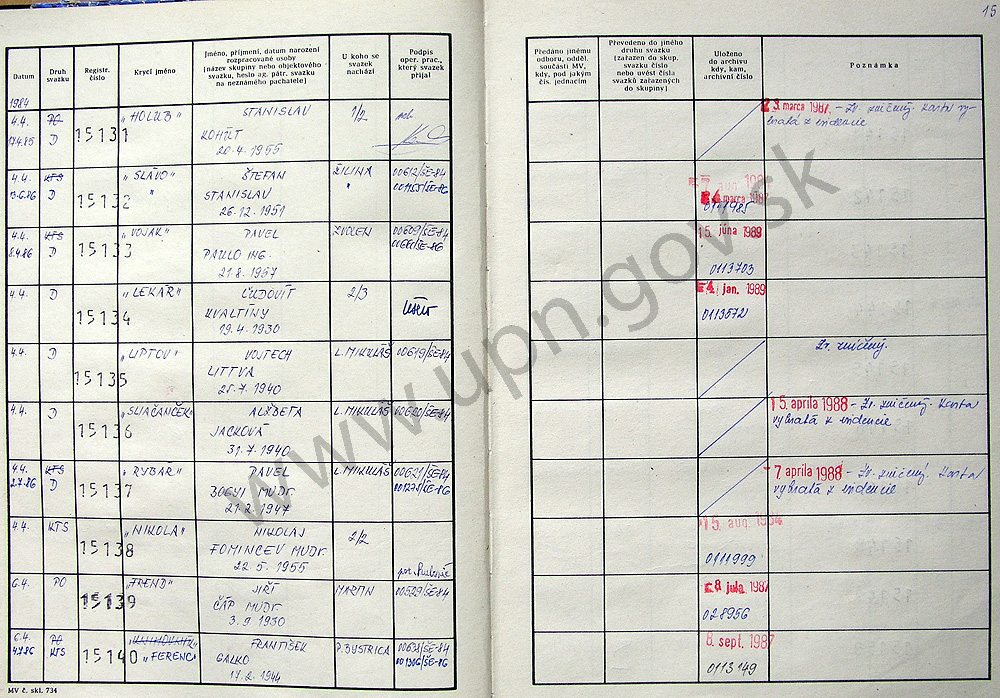 15
Datum
Druh svazku
Registr. číslo
Krycí jméno
Jméno, příjmení, datum narození
rozpracované osoby
(název skupiny nebo objektového
svazku, heslo ag. pátr. svazku
na neznámého pachatele)
U koho se
svazek
nachází
Podpis
oper. prac.,
který svazek
přijal
Předáno jinému
odboru, odděl.
součásti MV,
kdy, pod jakým
čís. jednacím
Převedeno do jiného
druhu svazku
(zařazen do skup.
svazku číslo
nebo uvést čísla
svazků zařazených
do skupiny)
Uloženo
do archivu
kdy, kam,
archivní číslo
Poznámka
1984
4.4. PO 15131 "HOLUB" STANISLAV 1/2
17.4.85 D KOHÚT
20.4.1955
3. marca 1987 - Zv. zničený. Karta vy-
bratá z evidencie
4.4. KTS 15132 "SLÁVO" ŠTEFAN ŽILINA 00612/ŠE-84
13.6.86 D " STANISLAV "
26.12.1951
4. marca 1987
4.4. KTS 15133 "VOJAK" PAVEL ZVOLEN 00609/ŠE-84
8.4.86 D PAULO ING.
21.8.1957
15. júna 1989
0113703
4.4. D 15134 "LEKÁR" ĽUDOVÍT 2/3
KVALTINY
19.4.1930
4. jan. 1989
0113572
4.4. D 15135 "LIPTOV" VOJTECH L. MIKULÁŠ 00619/ŠE-84
LITTVA
25.7.1940
Zv. zničený.
4.4. D 15136 "SLIAČANČEK" ALŽBETA L. MIKULÁŠ 00620/ŠE-84
JACKOVÁ
31.7.1940
15. apríla 1988 - Zv. zničený. Karta
vybratá z evidencie
4.4. KTS 15137 "RYBÁR" PAVEL L. MIKULÁŠ 00621/ŠE-84
2.7.86 D BOGYI MUDr. 001278/ŠE-86
21.2.1947
7. apríla 1988 - Zv. zničený. Karta
vybratá z evidencie
4.4. KTS 15138 "NIKOLA" NIKOLAJ 2/2
FOMINCEV MUDr.
22.5.1955
15. aug. 1984
0111999
6.4. PO 15139 "TREND" JIŘÍ MARTIN 00529/ŠE-84
ČÁP MUDr.
3.9.1930
8. júla 1987
028956
6.4. PO 15140 FRANTIŠEK P. BYSTRICA 00638/ŠE-84
4.7.86 KTS "FERENC" GALKO 001306/ŠE-86
17.2.1944
8. sept. 1987
0113149
MV č. skl. 734
www.upn.gov.sk